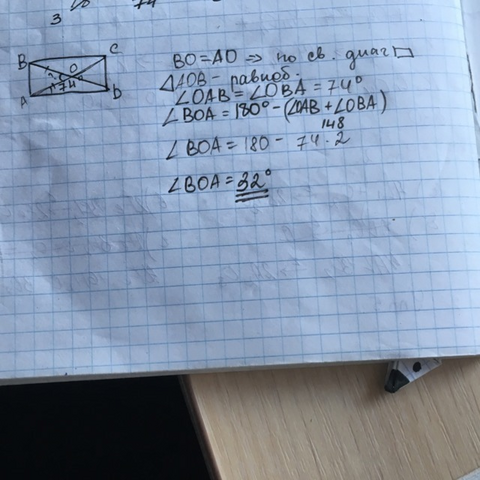 B C
O
74
A D
BO = AO => по св. диаг ▭
△AOB - равноб.
∠OAB = ∠OBA = 74°
∠BOA = 180° - (∠OAB + ∠OBA)
148
∠BOA = 180 - 74 · 2
∠BOA = 32°